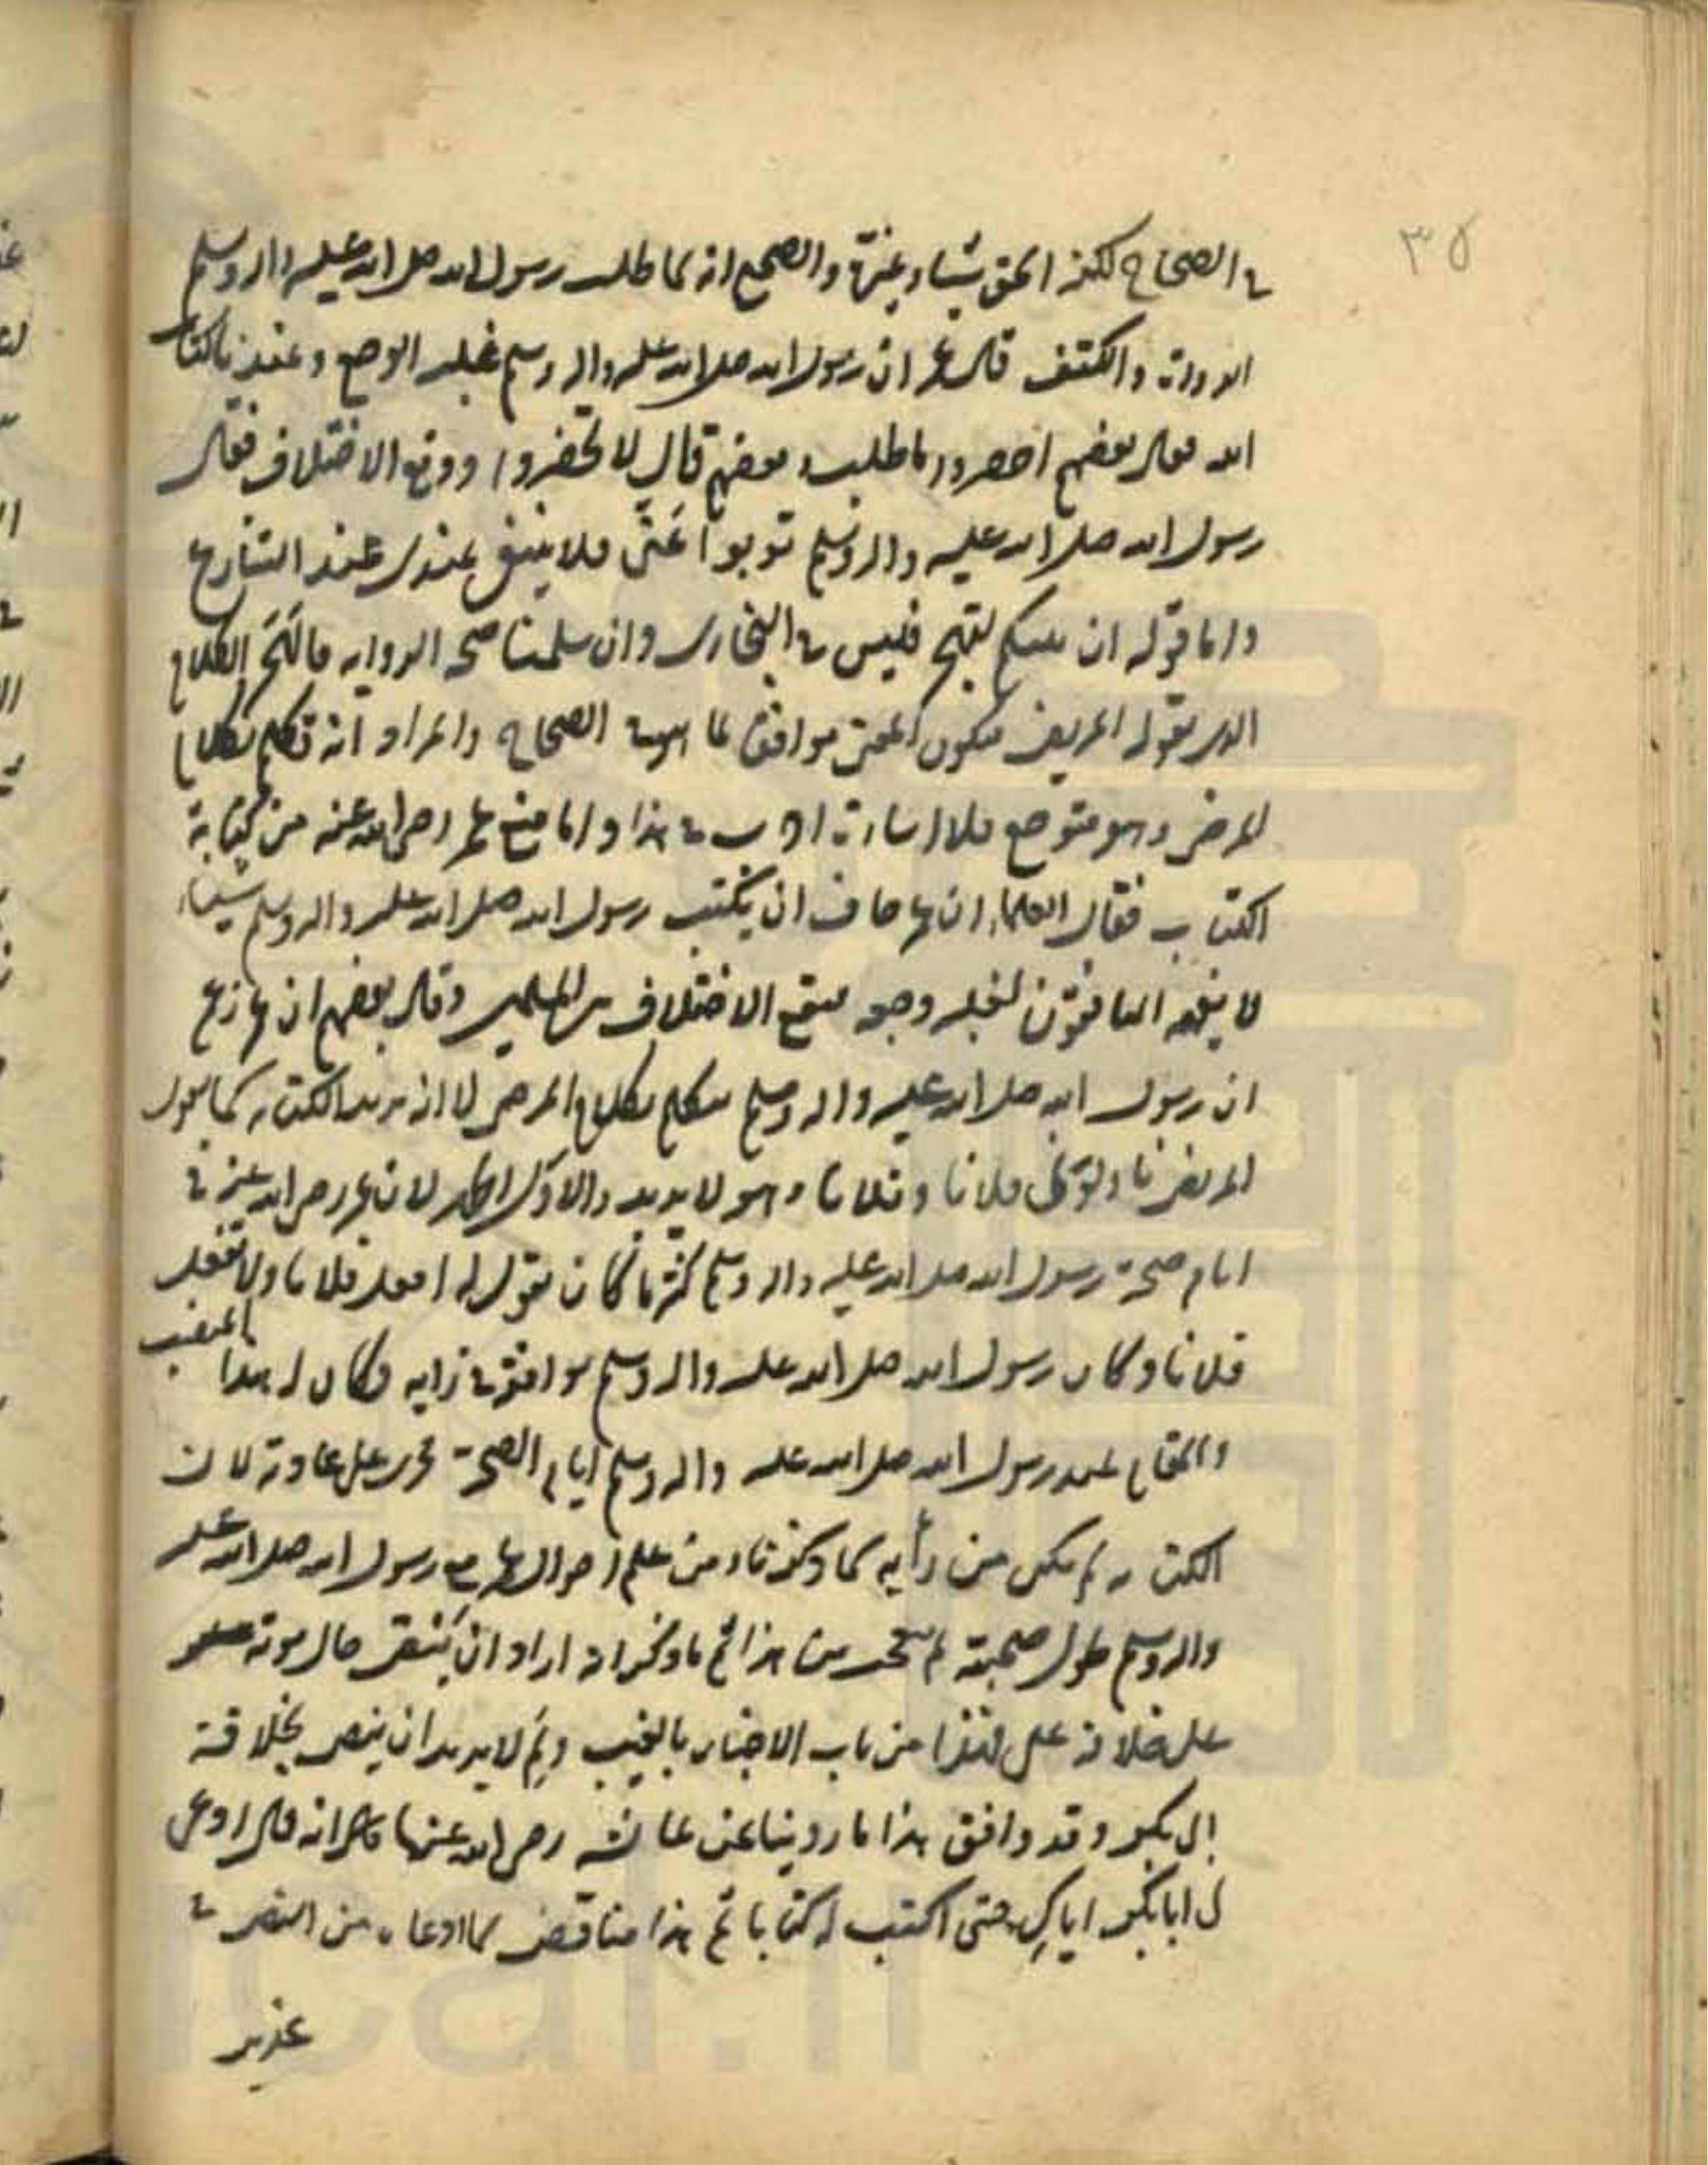 ٣٥
في الصحاح لكنه الحق شيئا وغيّره والصحيح انه لما طلب رسول الله صلى الله عليه واله وسلم
الدواة والكتف قال عمر ان رسول الله صلى الله عليه واله وسلم غلبه الوجع وعندنا كتاب
الله فقال بعضهم احضروا ما طلب وبعضهم قال لا تحضروا ووقع الاختلاف فقال
رسول الله صلى الله عليه واله وسلم قوموا عَنّى فلا ينبغي عندى عند التنازع
واما قوله ان نبيكم ليهجر فليس في البخارى وان سلمنا صحة الرواية فالهَجْر الكلام
الذى يقوله المريض فيكون المعنى موافقا لما في الصحاح والمراد انه تكلم بكلام
المرض وهو متوجع فلا اساءة ادب في هذا واما منع عمر رضى الله عنه من كتابة
الكتاب فقال العلماء ان عمر خاف ان يكتب رسول الله صلى الله عليه واله وسلم شيئا
لا يفهمه المنافقون لغلبه وجعه فيقع الاختلاف بين المسلمين وقال بعضهم ان عمر زعم
ان رسول الله صلى الله عليه واله وسلم يتكلم بكلام المرضى لا انه يريد الكتابه كما يقول
المريض ناولونى فلانا وفلانا وهو لا يريد والاول اظهر لان عمر رضى الله عنه في
ايام صحة رسول الله صلى الله عليه واله وسلم كثيرا ما كان يقول له افعل فلانا ولا تفعل
فلانا وكان رسول الله صلى الله عليه واله وسلم يوافقه في رايه وكان له هذا المنصب
والمقام عند رسول الله صلى الله عليه واله وسلم ايام الصحة فجرى على عادته لان
الكتابه لم يكن من رأيه كما ذكرنا ومن علم احوال عمر مع رسول الله صلى الله عليه
واله وسلم طول صحبته لم يتعجب من هذا ثم ما ذكر انه اراد ان ينص حال موته
على خلافة على فهذا من باب الاخبار بالغيب ولِمَ لا يريد ان ينص بخلافة
ابى بكر وقد وافق هذا ما روينا عن عائشه رضى الله عنها انه قال ادعى
لى ابا بكر اباكِ حتى اكتب له كتابا ثم هذا مناقض لما ادعاه من النص في
غدير